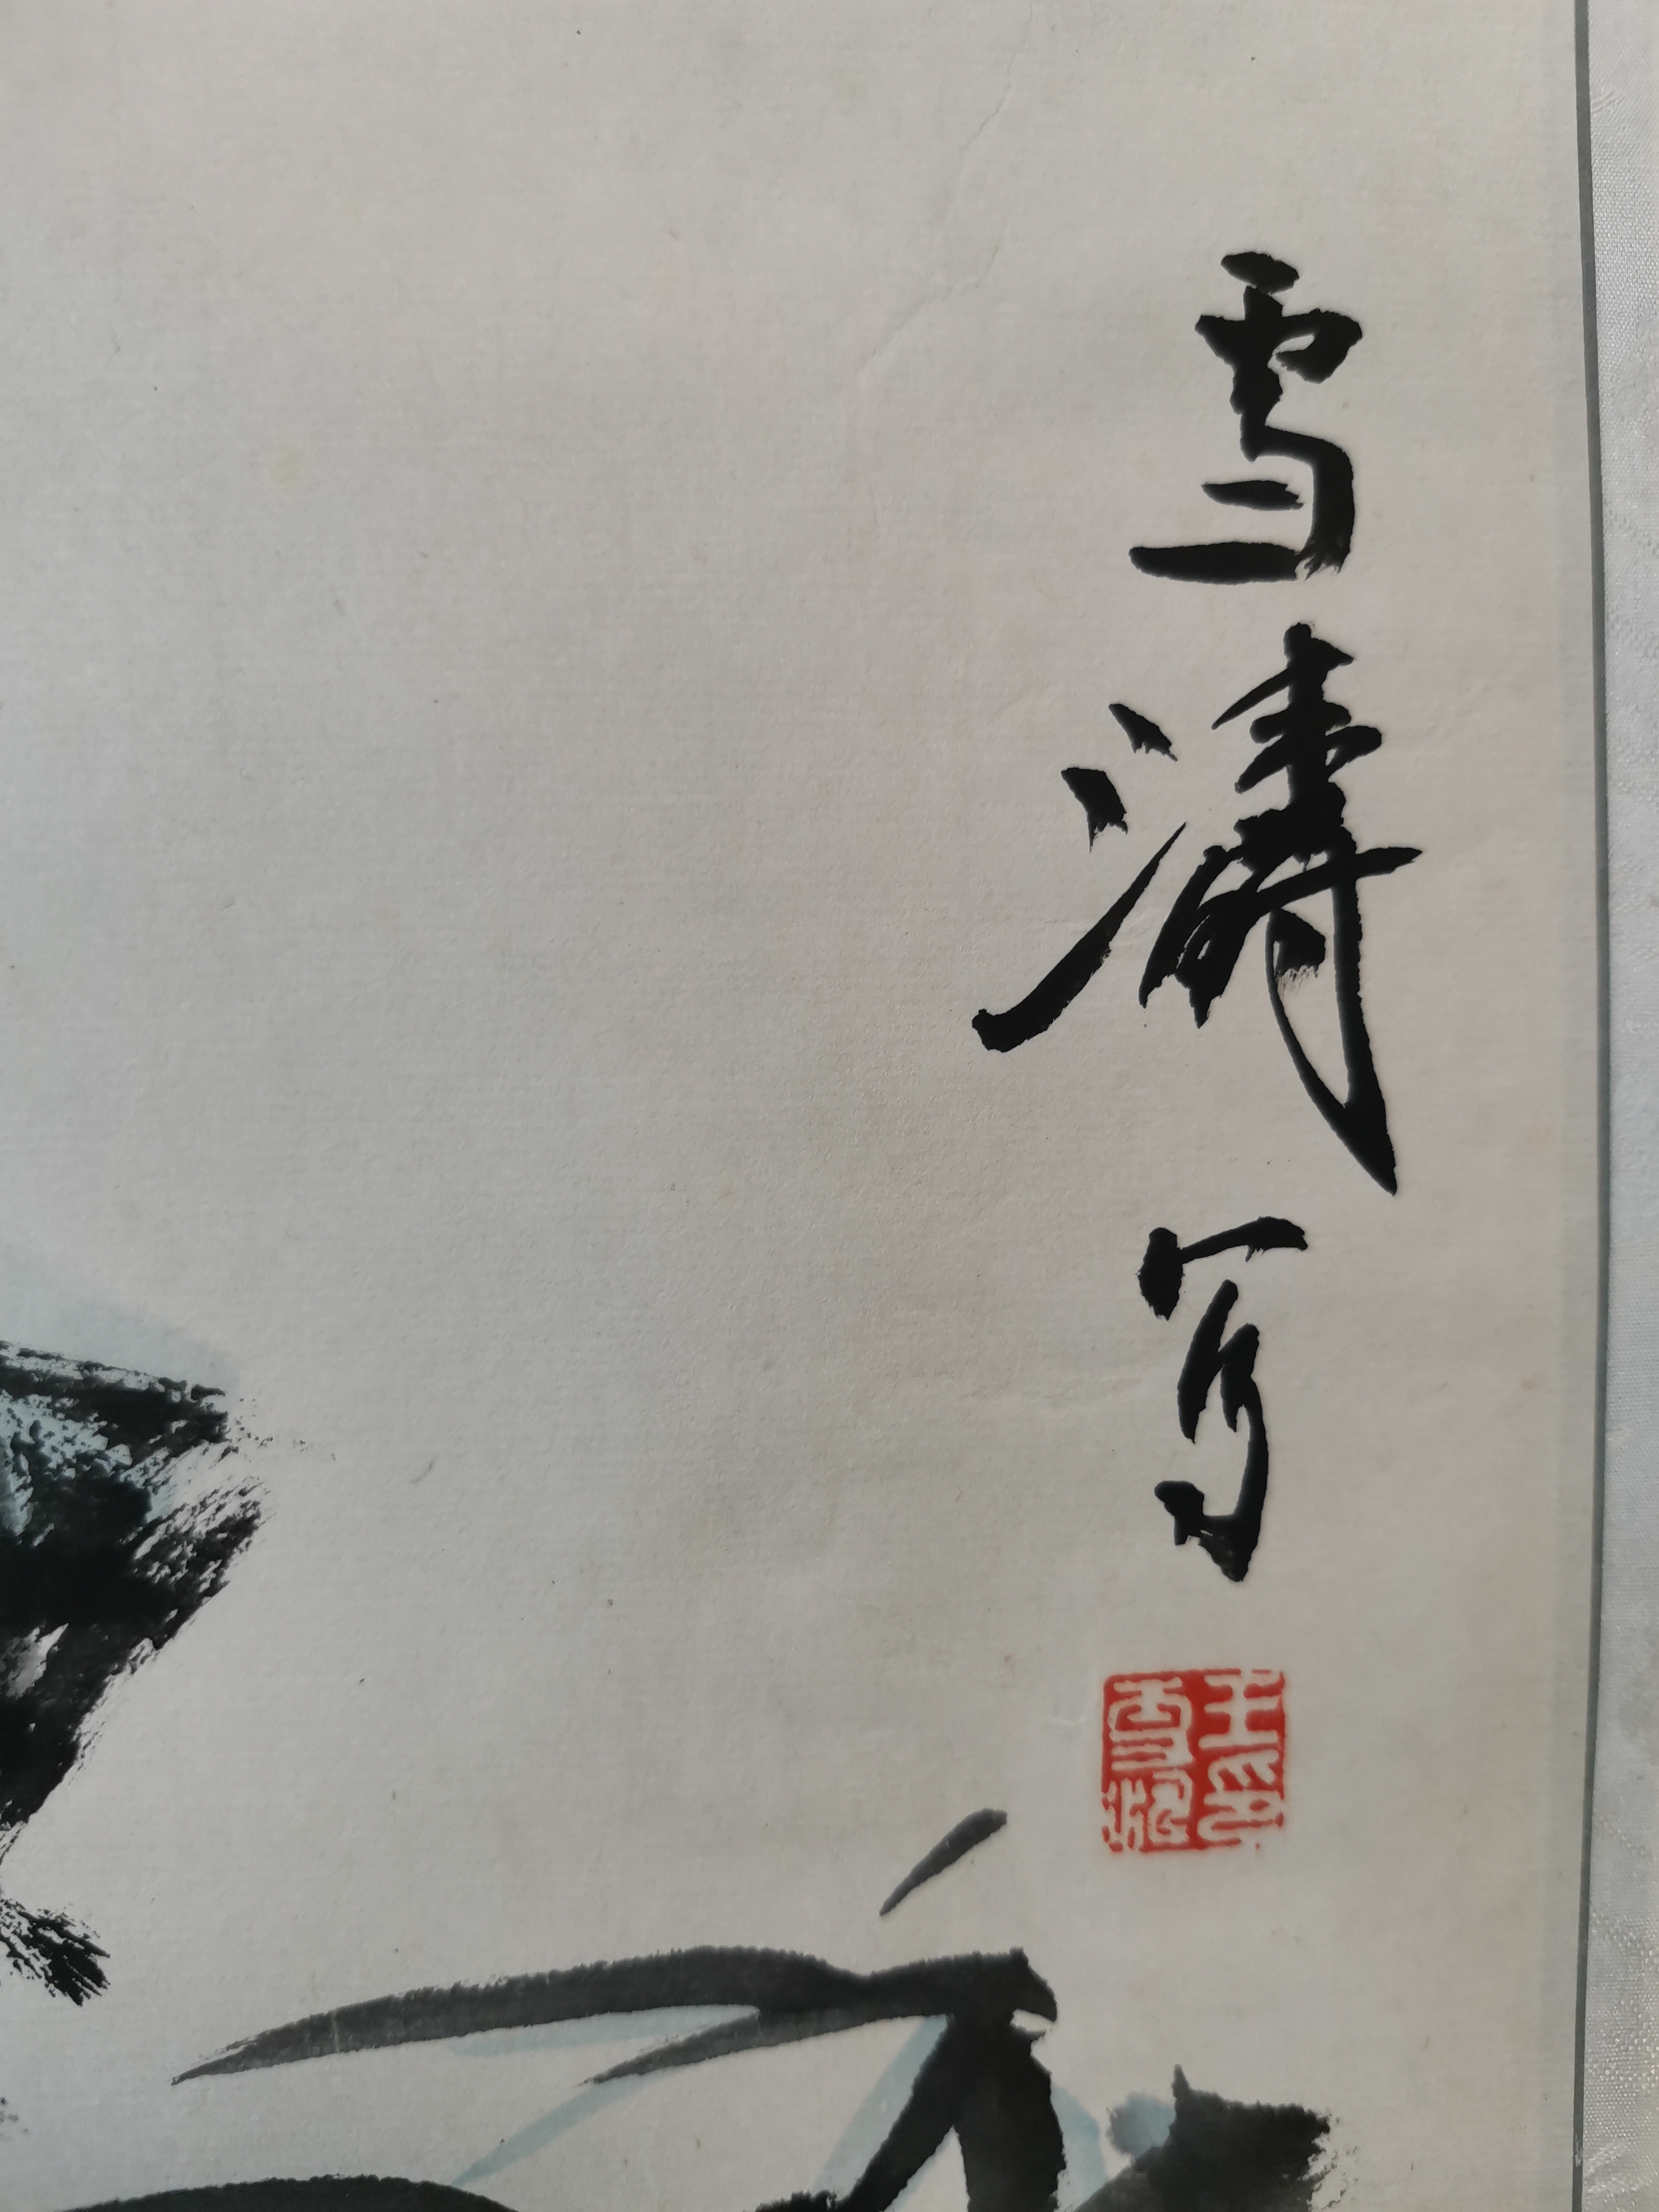 雪濤寫
王印
雪濤